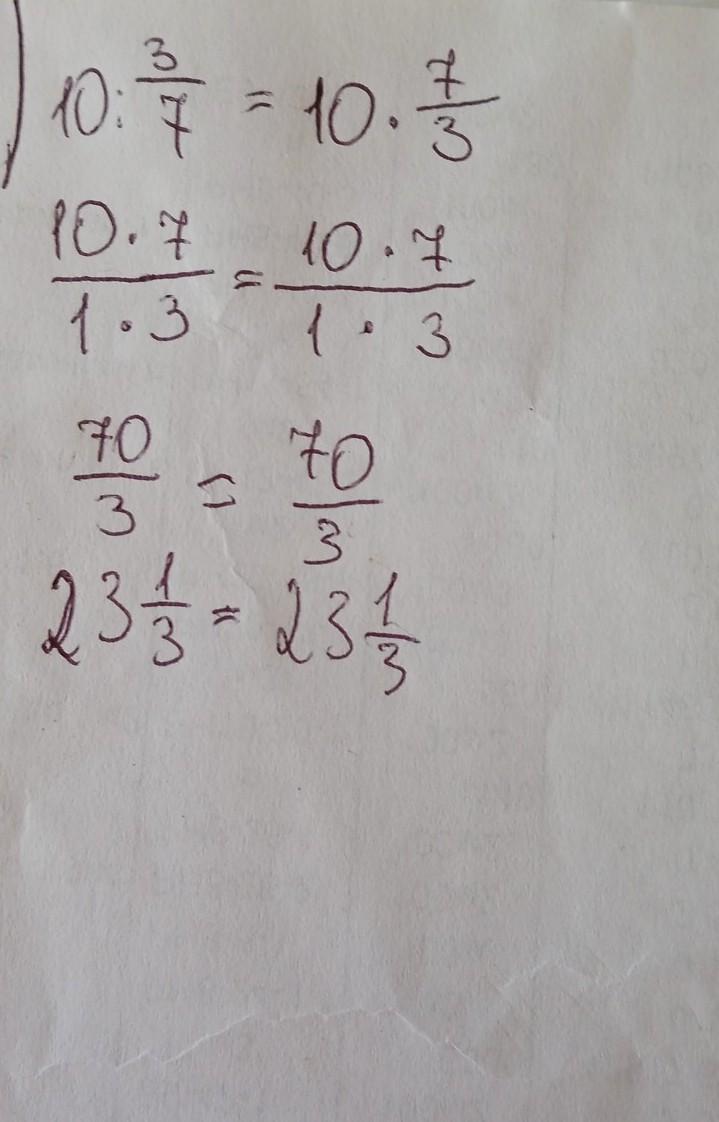 ) 10 : 3/7 = 10 · 7/3
10 · 7 / 1 · 3 = 10 · 7 / 1 · 3
70/3 = 70/3
23 1/3 = 23 1/3